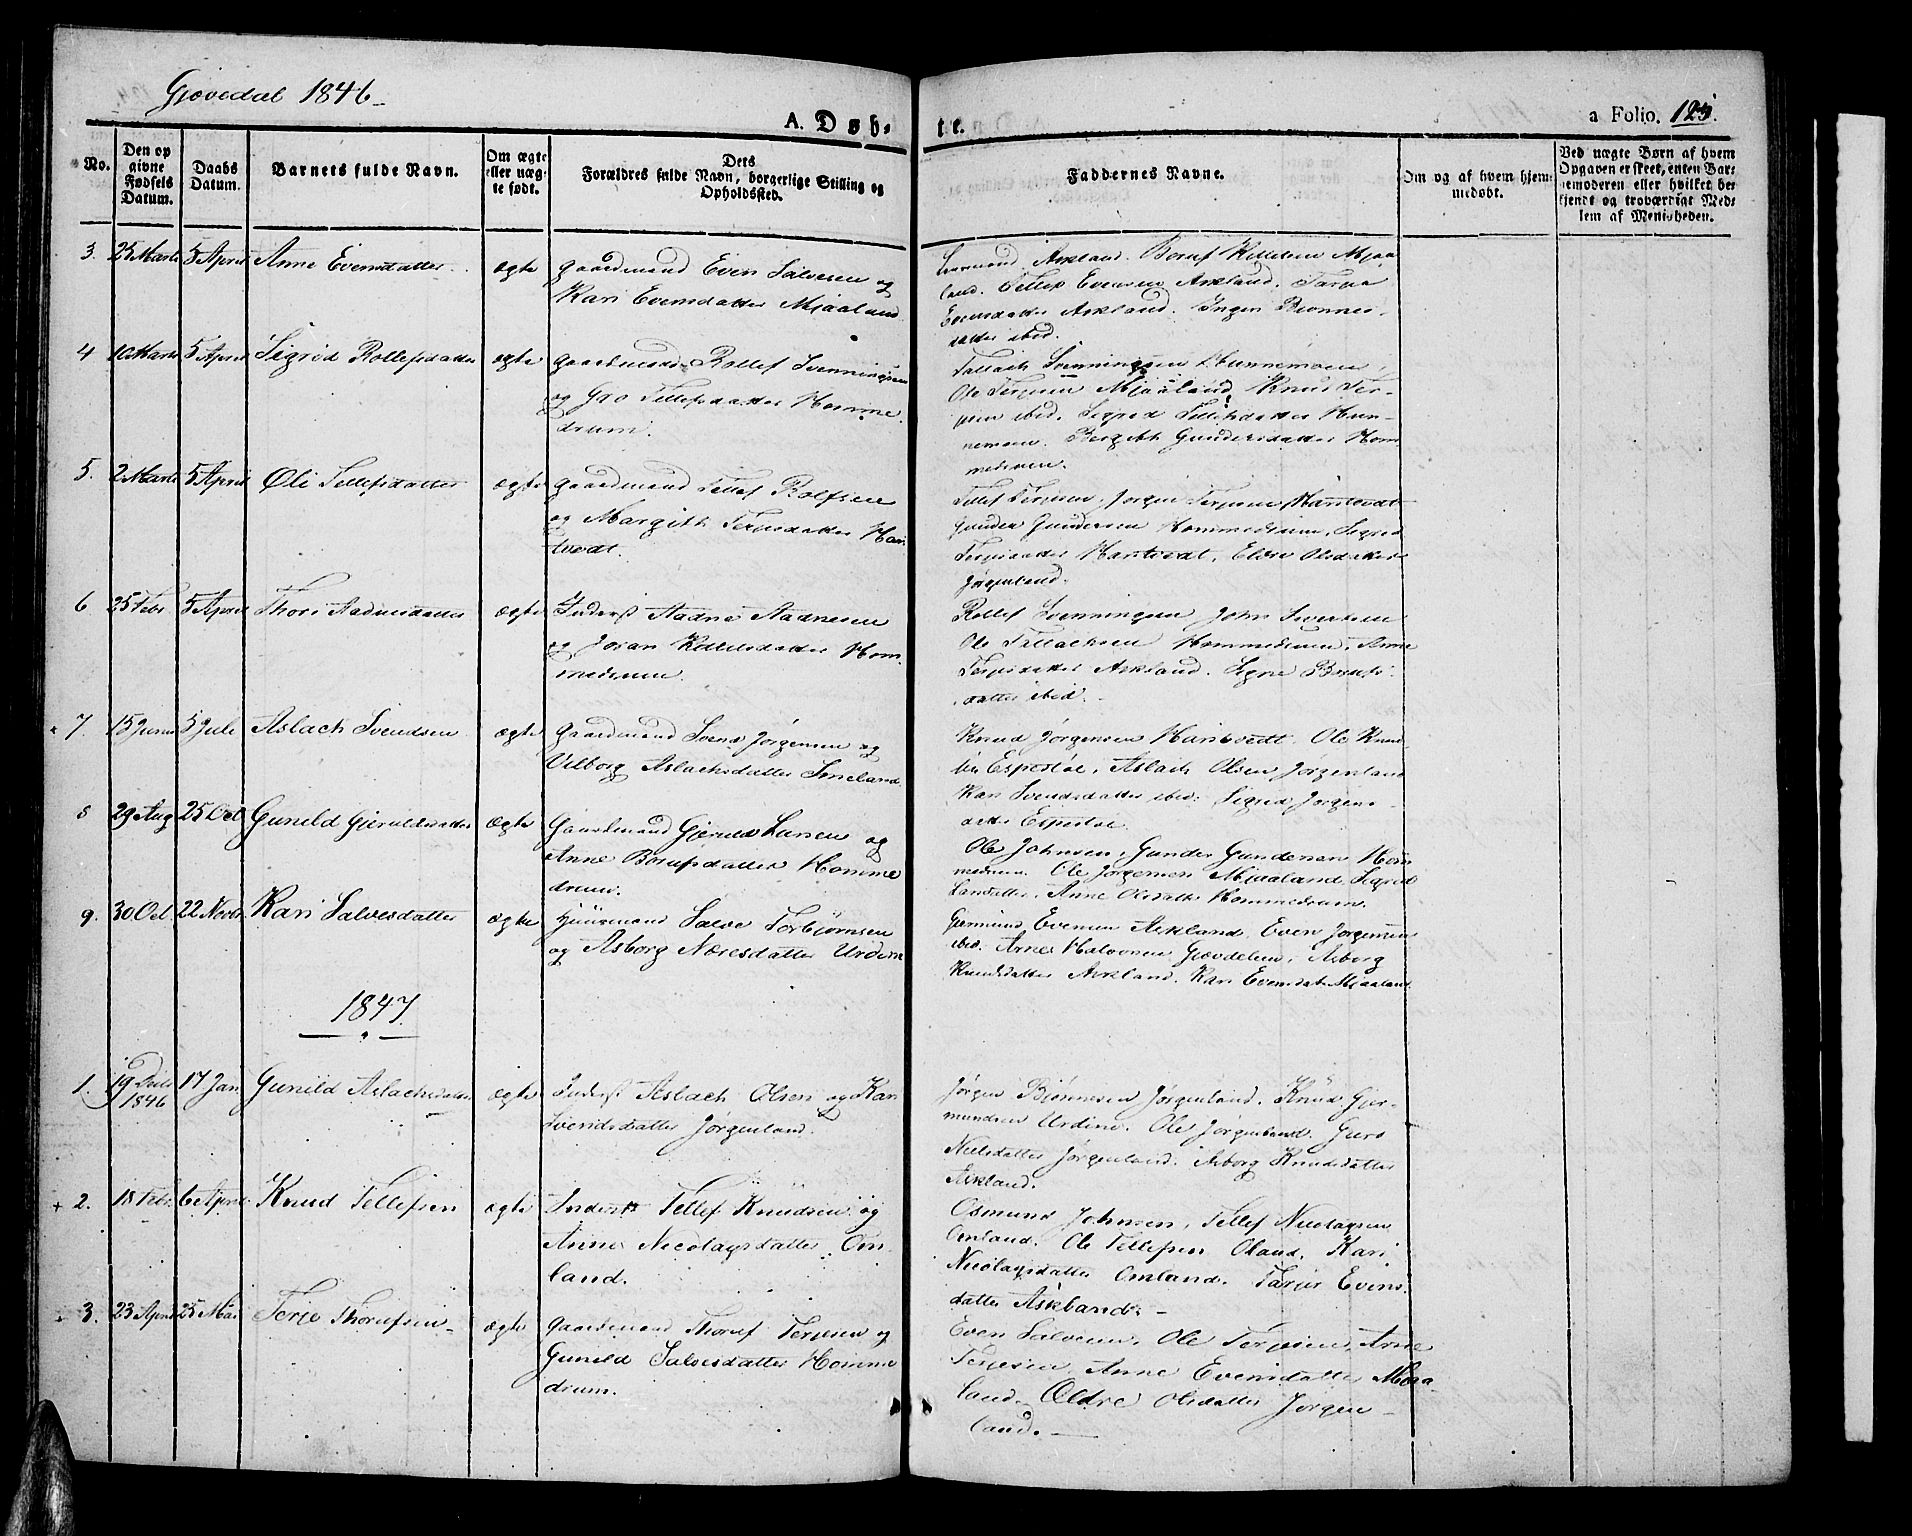 Gjøvedal 1846
A. Døb-
te.
a Folio. 125.
No.
Den op
givne
Fødsels
Datum.
Daabs
Datum.
Barnets fulde Navn.
Om ægte
eller uæg-
te født.
Dets
Forældres fulde Navn, borgerlige Stilling og
Opholdssted.
Faddernes Navne.
Om og af hvem hjem-
medøbt.
Ved uægte Børn af hvem
Opgaven er skeet, enten Bar-
nemoderen eller hvilket be-
kjendt og troværdigt Med-
lem af Menigheden.
3. 25 Marts 5 April Anne Evensdatter ægte Gaardmand Even Salvesen og
Kari Evensdatter Mjaaland
Askland. Boruf Kittelsen Mjaa-
land. Tellef Evensen Askland. Tarjer
Evensdatter Askland. Inger Bjønnes-
datter ibid.
4 10 Marts 5 April Sigrid Rollefsdatter ægte Gaardmand Rollef Svenningsen
og Gro Tellefsdatter Homme
drum.
Tallach Svenningsen Hunnemoen,
Ole Terjesen Mjaaland, Knud Ter-
jesen ibid. Sigrid Tellefsdatter Hun-
nemoen. Bergith Gundersdatter Hom
medrum.
5. 2 Marts 5 April Oli Tellefsdatter ægte Gaardmand Tellef Rolfsen
og Margith Terjesdatter Han
tvedt.
Tellef Terjesen, Jørgen Terjesen Hantvedt
Gunder Gundersen Hommedrum, Sigrid
Terjesdatter Hantvedt, Olsdatter
Jørgenland.
6 25 Febr 5 April Thori Aadnesdatter ægte Inderst Aadne Aadnesen
og Joran Kittilsdatter Hom
medrum.
Rollef Svenningsen John Sivertsen
Ole Tallachsen Hommedrum, Anne
Terjesdatter Askland. Signe Borufs-
datter ibid.
7. 15 Juni 5 Juli Aslach Svendsen ægte Gaardmand Svend Jørgensen og
Vilborg Aslachsdatter Smeland
Knud Jørgensen Hantvedt. Ole Knud-
sen Espestøl, Aslach Olsen Jørgenland
Kari Svendsdatter ibid: Sigrid Jørgens-
datter Espestøl.
8 29 Aug 25 Oct Gunild Gjeruldsdatter ægte Gaardmand Gjeruld Larsen og
Anne Borufsdatter Homme
drum.
Ole Johnsen, Gunder Gundersen Hom
medrum. Ole Jørgensen Mjaaland, Sigrid
Larsdatter, Anne Olsdatter Hommedrum.
9. 30 Oct. 22 Novbr Kari Salvesdatter ægte Huusmand Salve Torbjørnsen
og Asborg Neresdatter Urdern
Gjermund Evensen Askland, Even Jørgensen
ibid. Arne Halvorsen Gjøvdelen, Asborg
Knudsdatter Askland. Kari Evensdat: Mjaaland.
1847.
1. 19 Decbr
1846 17 Jan Gunild Aslachsdatter ægte Inderst Aslach Olsen og Kari
Svendsdatter Jørgenland.
Jørgen Bjønnesen Jørgenland. Knud Gjer-
mundsen Urdine. Ole Jørgenland. Guro
Nielsdatter Jørgenland. Asborg Knudsdatter
Askland.
+ 2. 18 Febr. 6 April Knud Tellefsen ægte Inderst Tellef Knudsen og
Anne Nicolaysdatter Om-
land.
Osmund Johnsen, Tellef Nicolaysen
Omland. Ole Tellefsen Oland. Kari
Nicolaysdatter Omland. Tarjer Evens-
datter Askland. -
3. 23 April 25 Mai Terje Thorufsen ægte Gaardmand Thoruf Terjesen og
Gunild Salvesdatter Homme
drum.
Even Salvesen, Ole Terjesen, Arne
Terjesen, Anne Evensdatter Mjaa-
land. Oldre Olsdatter Jørgen-
land.